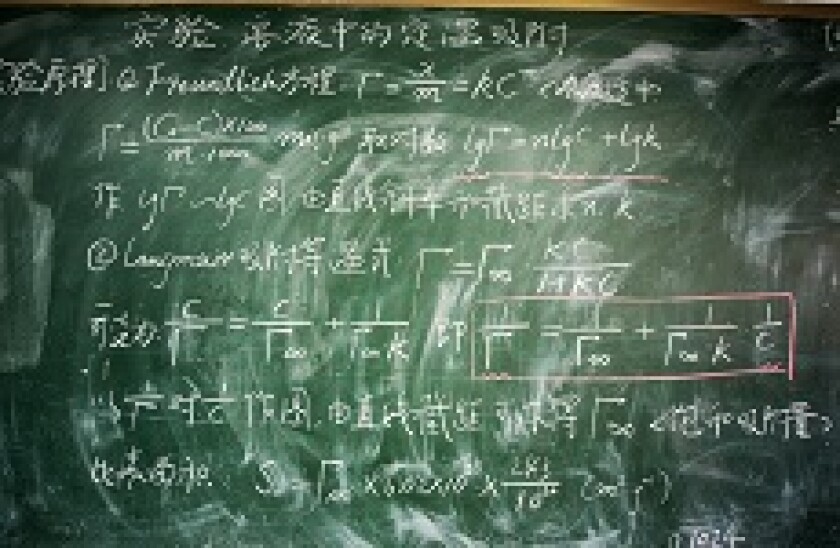 实验 溶液中的定温吸附
实验原理] ① Freundlich方程 Γ=x/m=kCⁿ
Γ=(C₀-C)×1000/m·1000 取对数 lgΓ=nlgC+lgk
作 lgΓ~lgC图 由直线斜率和截距求n.k
② Langmuir吸附等温式 Γ=Γ∞ KC/1+KC
C/Γ=C/Γ∞+1/Γ∞K 即 1/Γ=1/Γ∞+1/Γ∞K 1/C
以1/Γ对1/C作图,由直线截距 求得Γ∞<饱和吸附量>
比表面积 S₀=Γ∞×6.02×10²³×